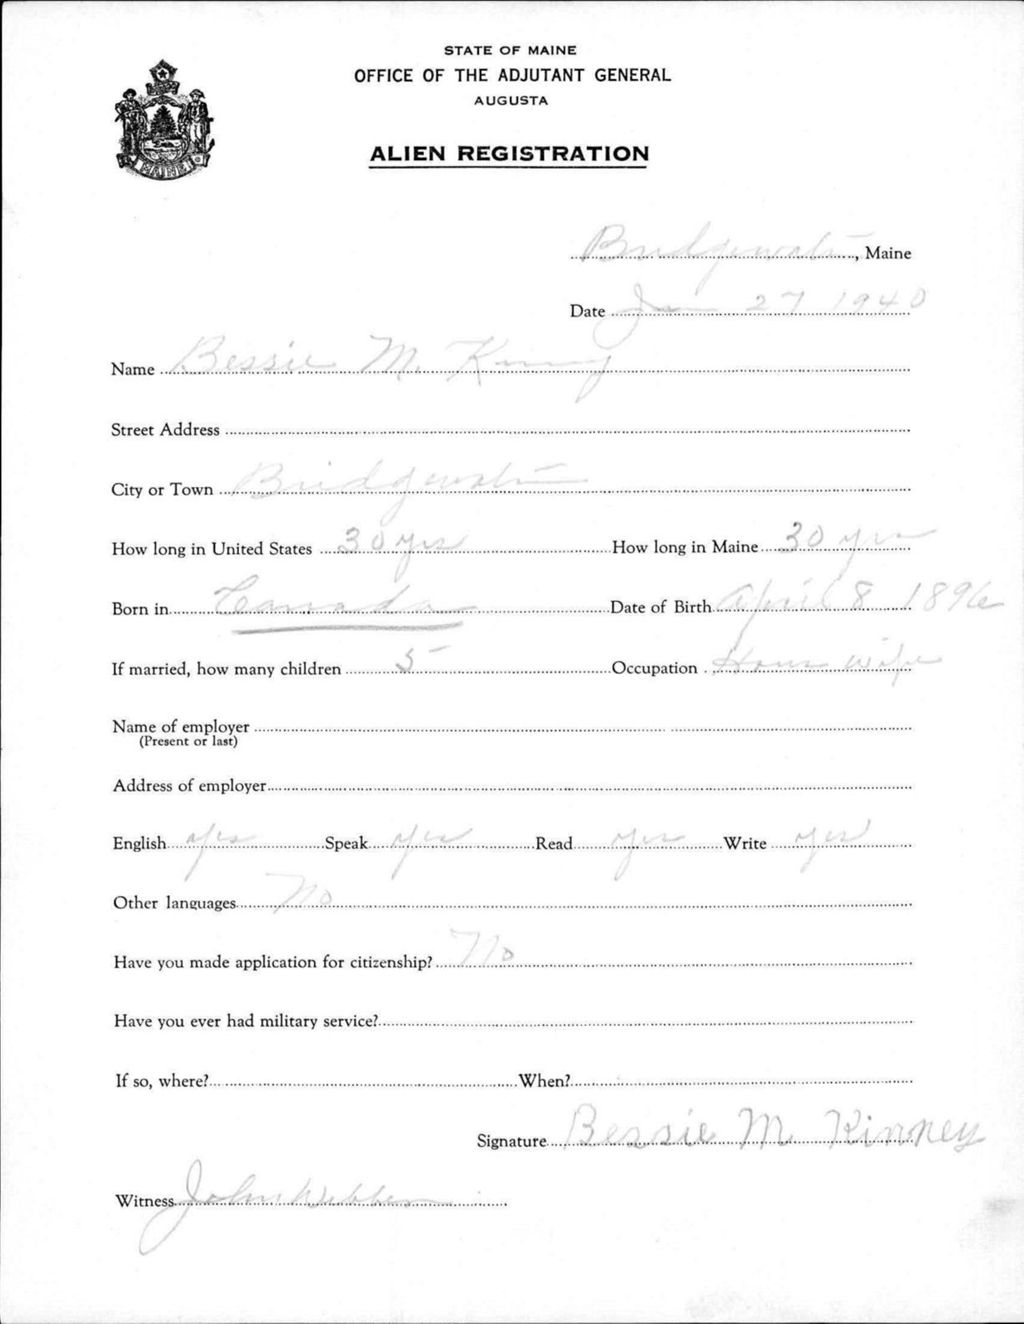 STATE OF MAINE
OFFICE OF THE ADJUTANT GENERAL
AUGUSTA
MAINE
ALIEN REGISTRATION
Bridgewater, Maine
Date Jan 27 1940
Name Bessie M. Kinney
Street Address
City or Town Bridgewater
How long in United States 30 yrs How long in Maine 30 yrs
Born in Canada Date of Birth April 8 1896
If married, how many children 5 Occupation House wife
Name of employer
(Present or last)
Address of employer
English yes Speak yes Read yes Write yes
Other languages No
Have you made application for citizenship? No
Have you ever had military service?
If so, where? When?
Signature Bessie M Kinney
Witness John Webber